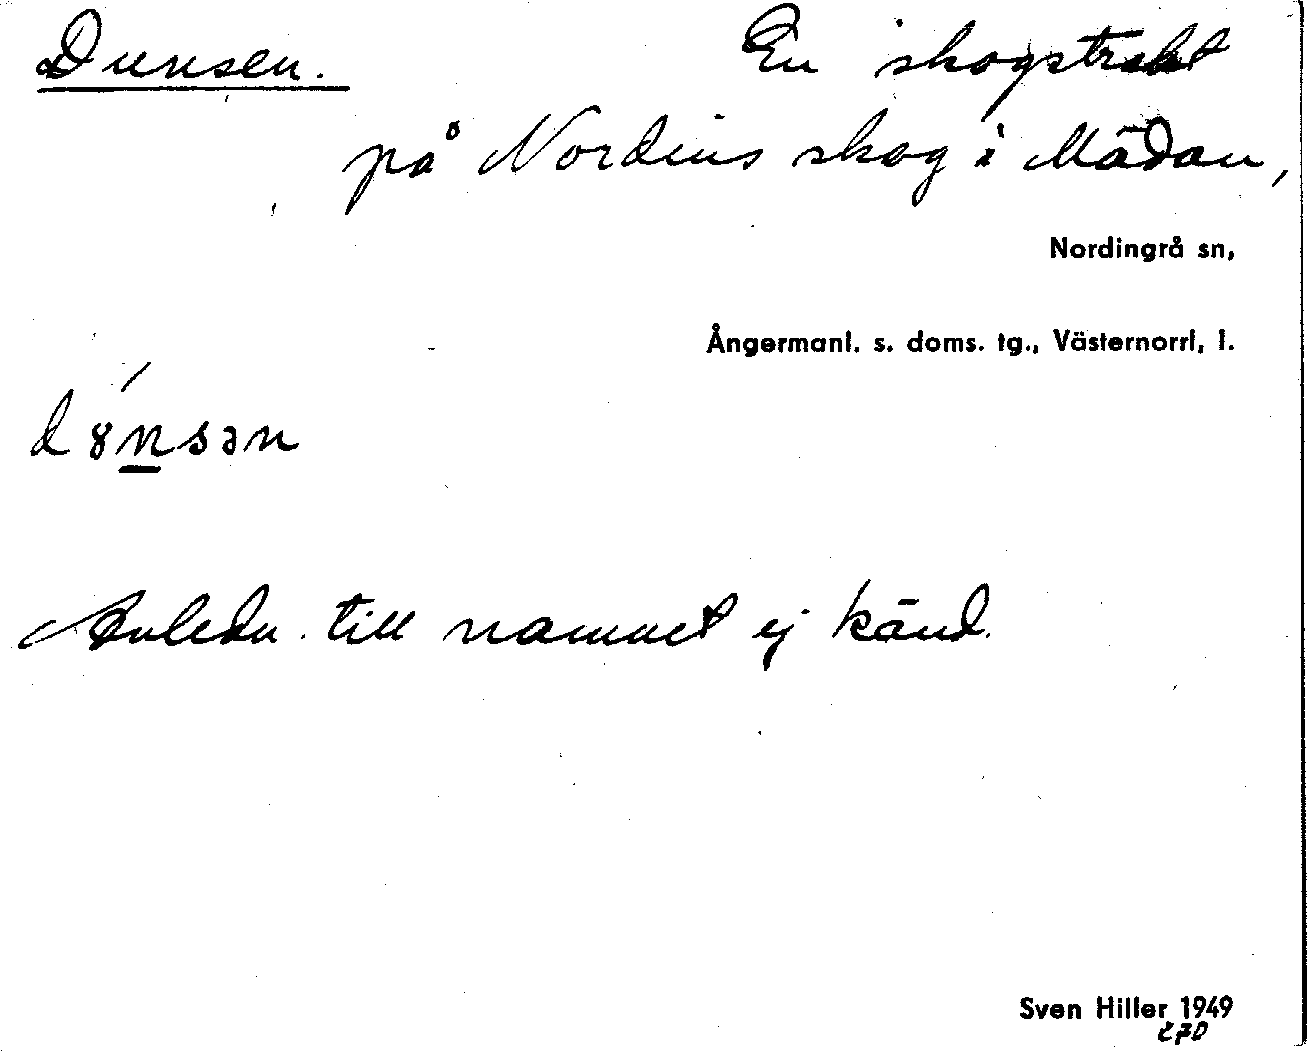 Dunsen. En skogstrakt
på Nordins skog i Mädan,
Nordingrå sn,
Ångermanl. s. doms. tg., Västernorrl, l.
d8́nsən
Anledn. till namnet ej känd.
Sven Hiller 1949